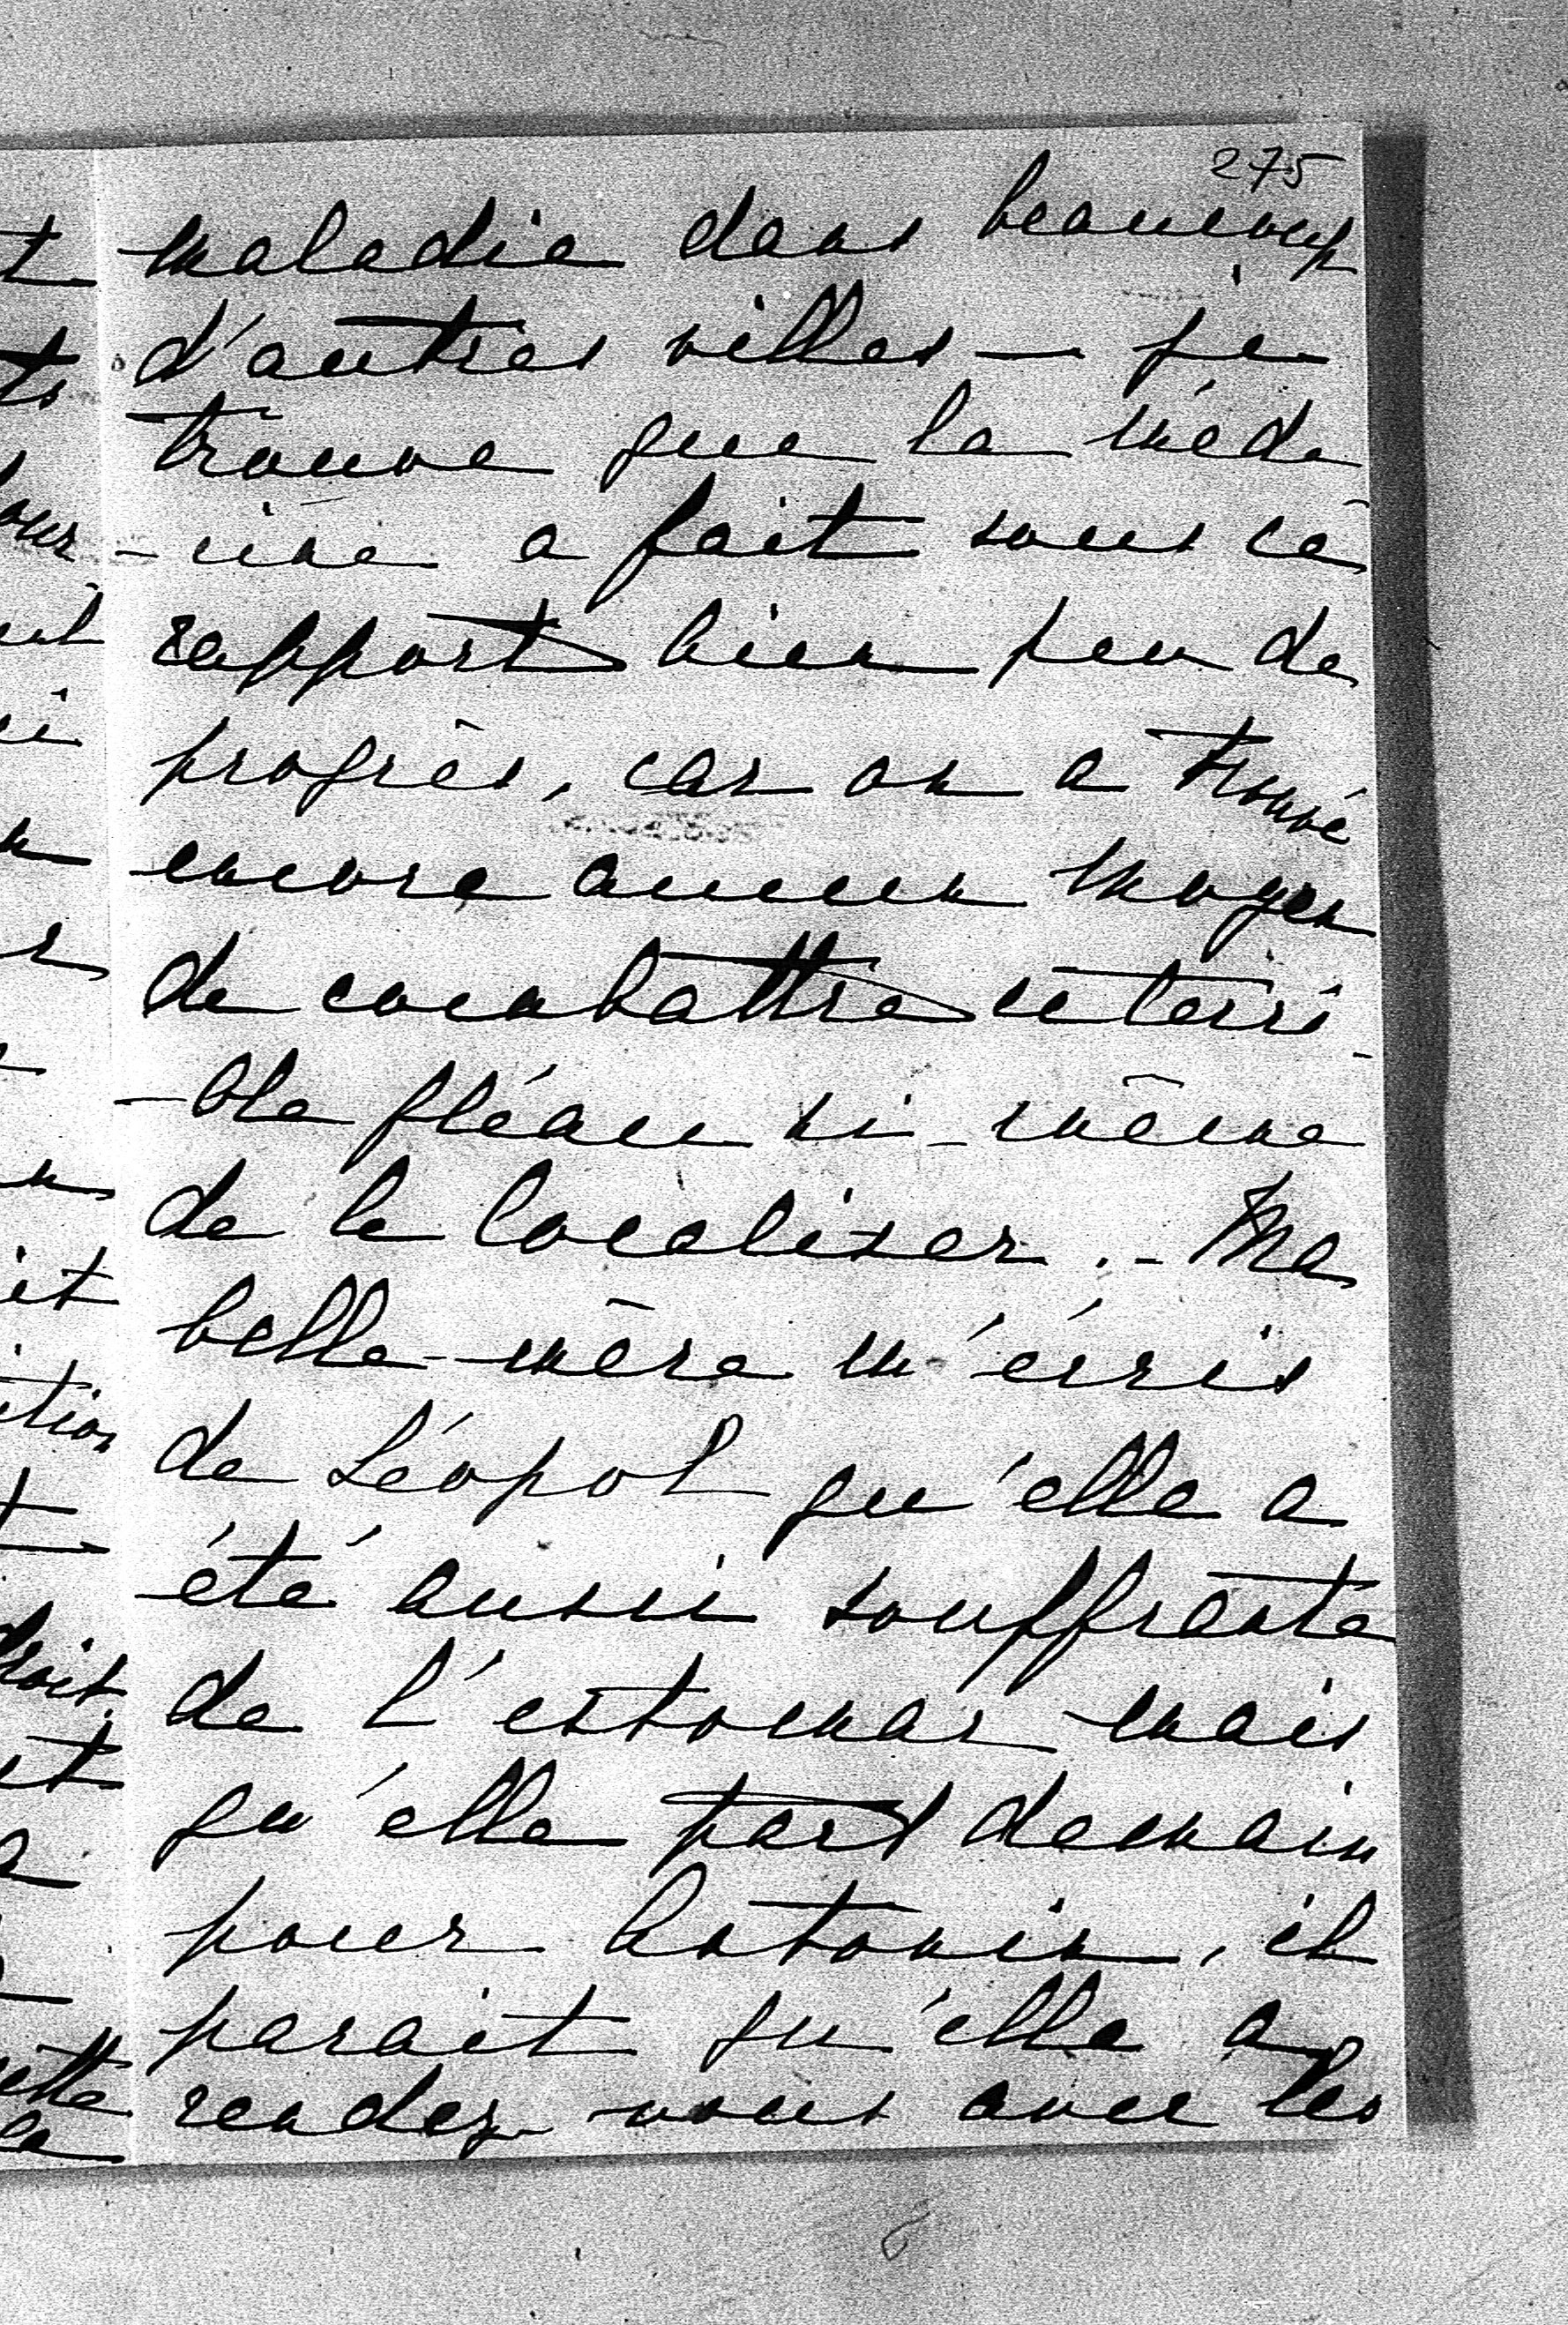 275
maladie dans beaucoup
d'autres villes — je
trouve que la méde
-cine a fait sous ce
rapport bien peu de
progrès, car on a trouvé
encore aucun moyen
de combattre ce terri-
-ble fléau ni même
de le localiser. - Ma
belle-mère m'écris
de Léopol qu'elle a
été aussi souffrante
de l'estomac mais
qu'elle part demain
pour Antonin, il
parait qu'elle a
rendez-vous avec les